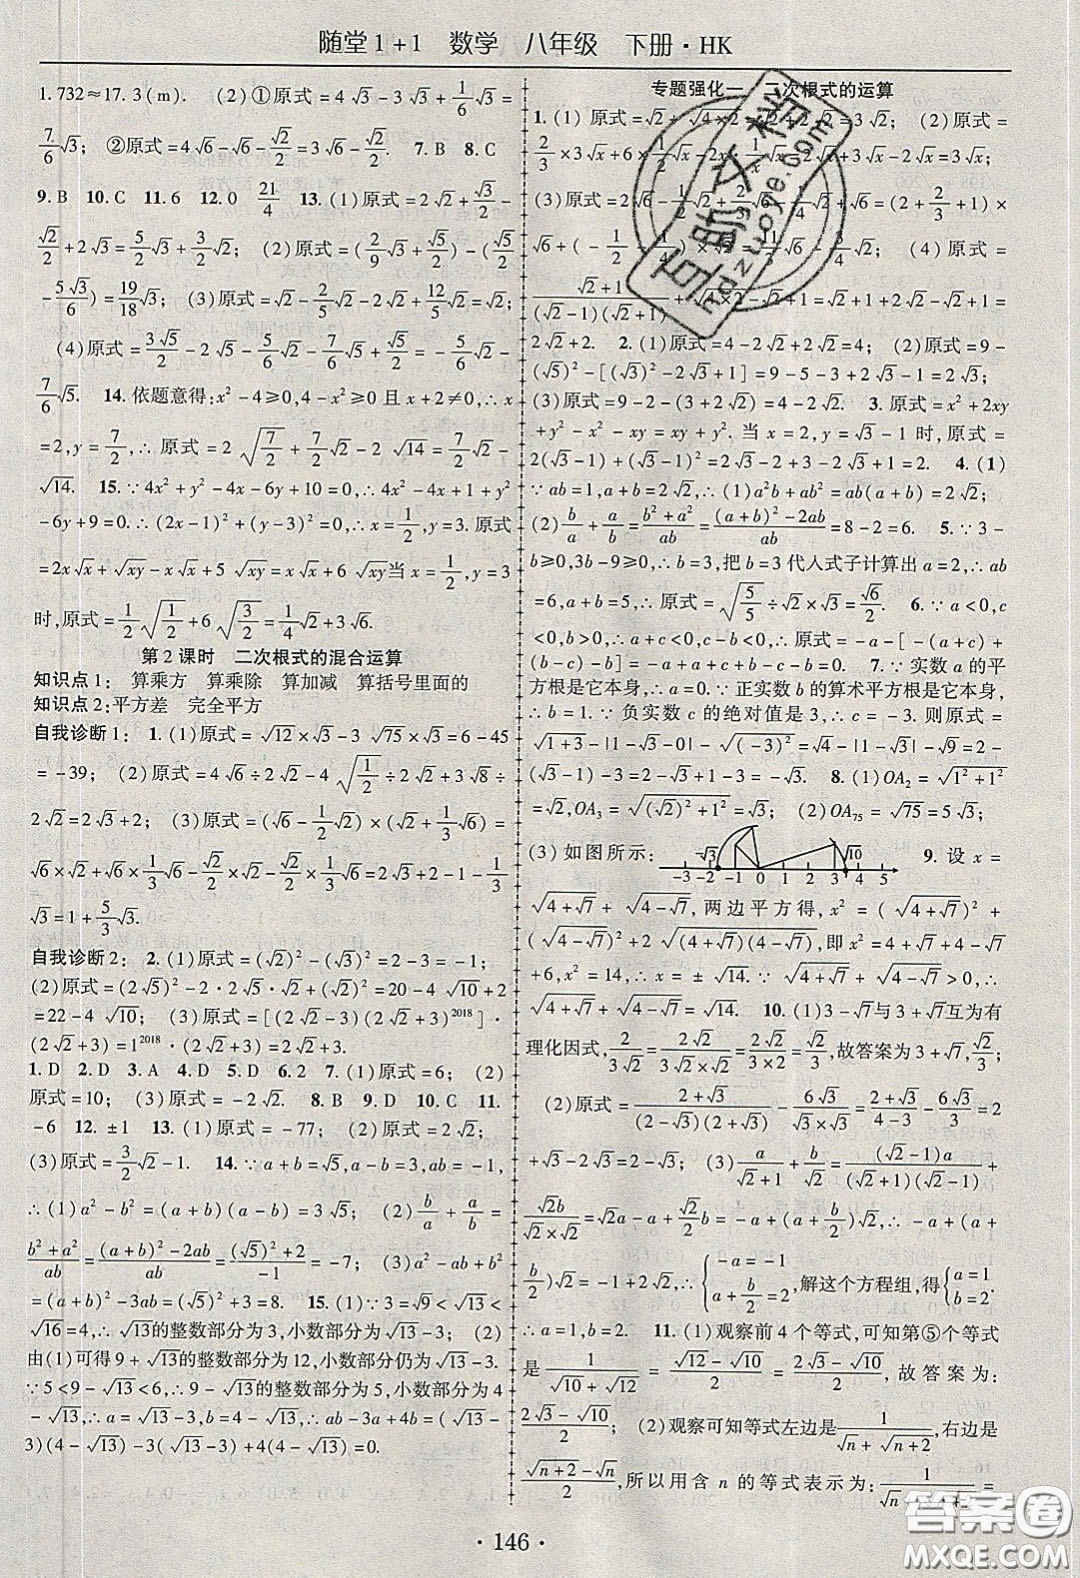 随堂1+1 数学 八年级 下册·HK
1.732≈17.3(m). (2)①原式=4√3-3√3+1/6√3=
7/6√3; ②原式=4√6-√6-√2/2=3√6-√2/2. 7.B 8.C
9.B 10.C 11.6 12.0 21/4 13.(1)原式=2√2+√3/2-
√2/2+2√3=5/2√3+3/2√2; (2)原式=(2/9√3+√5/2)-(√5/2
-5√3/6)=19/18√3; (3)原式=√2-2/5√2+12/5√2=3√2;
(4)原式=3√5/2-2√5-5/6√2-7/6√5+5/2√2=5/3√2-
7/6√5. 14.依题意得:x²-4≥0,4-x²≥0且x+2≠0,∴x
=2,y=7/2,∴原式=2√(7/2)+7/2√2-2√14=7/2√2-
√14. 15.∵4x²+y²-4x-6y+10=0,∴4x²-4x+1+y²
-6y+9=0.∴(2x-1)²+(y-3)²=0,∴x=1/2,y=3.原式
=2x√x+√xy-x√x+5√xy=x√x+6√xy当x=1/2,y=3
时,原式=1/2√(1/2)+6√(3/2)=1/4√2+3√6.
第2课时 二次根式的混合运算
知识点1: 算乘方 算乘除 算加减 算括号里面的
知识点2:平方差 完全平方
自我诊断1: 1.(1)原式=√12×√3-3√75×√3=6-45
=-39; (2)原式=4√6÷2√2-4√(1/2)÷√2+3√8÷
2√2=2√3+2; (3)原式=(√6-1/2√2)×(√2+1/3√6)=
√6×√2+√6×1/3√6-√2/2×√2-√2/2×1/3√6=2√3+2-1-1/3
√3=1+5/3√3.
自我诊断2: 2.(1)原式=(√2)²-(√3)²=2-3=-1;
(2)原式=(2√5)²-2·2√5·√2+(√2)²=20-4√10+2
=22-4√10; (3)原式=[(2√2-3)(2√2+3)²⁰¹⁸]·
(2√2+3)=1²⁰¹⁸·(2√2+3)=2√2+3.
1.D 2.D 3.A 4.D 5.D 6.2 7.(1)原式=6; (2)
原式=10; (3)原式=-2√2. 8.B 9.D 10.C 11.
-6 12.±1 13.(1)原式=-77; (2)原式=2√2;
(3)原式=3/2√2-1. 14.∵a+b=√5,a-b=3,ab=-1,
∴(1)a²-b²=(a+b)(a-b)=3√5; (2)b/a+a/b=
(b²+a²)/ab=((a+b)²-2ab)/ab=((√5)²+2)/-1=-7; (3)a²-ab+b²
=(a+b)²-3ab=(√5)²+3=8. 15.(1)∵3=√9<√13<
√16=4,∴√13的整数部分为3,小数部分为√13-3; (2)
由(1)可得9+√13的整数部分为12,小数部分仍为√13-3.
∵5<9-√13<6,∴9-√13的整数部分为5,小数部分为4
-√13,∴a=√13-3,b=4-√13,∴ab-3a+4b=(√13-
3)(4-√13)-3(√13-3)+4(4-√13)+3=0.
专题强化一 二次根式的运算
1.(1)原式=√2+√4×2-2√2+2√2=3√2; (2)原式=
2/3×3√x+6×1/2√x-2x·1/x√x=2√x+3√x-2√x=3√x;
(3)原式=2√6
√6+(-1/4
(4)原式=
(√2+1)/((√2-1)(√2+1))
2√2+2. 2.(1)原式=4-2√2+2√2=4; (2)原式=9-
(√5)²-[(√3)²-2√3+1]=9-5-(3-2√3+1)=2√3;
(3)原式=9-2-(3+2√2)=4-2√2. 3.原式=x²+2xy
+y²-x²-xy=xy+y². 当x=2,y=√3-1时,原式=
2(√3-1)+(√3-1)²=2√3-2+3-2√3+1=2. 4.(1)
∵ab=1,a+b=2√2,∴(1)a²b+ab²=ab(a+b)=2√2;
(2)b/a+a/b=(b²+a²)/ab=((a+b)²-2ab)/ab=8-2=6. 5.∵3-
b≥0,3b-9≥0,∴b=3,把b=3代人式子计算出a=2,∴ab
=6,a+b=5,∴原式=√(5/5)÷√2×√3=√6/2. 6.∵a<0,c
<0,b>0,∴a+c<0,c-b<0,∴原式=-a-[-(a+c)
-(b-c)]-b=-a+a+c+b-c-b=0. 7.∵实数a的平
方根是它本身,∴a=0. ∵正实数b的算术平方根是它本身,
∴b=1. ∵负实数c的绝对值是3,∴c=-3. 则原式=
√(1+3)-|1-√3-0|-√(1-(-3)²)=√4-|1-√3|-√9=2-(
√3-1)-3=2-√3+1-3=-√3. 8.(1)OA₂=√(1²+1²)
=√2,OA₃=√((√2)²+1²)=√3; (2)OA₇₅=√75=5√3;
(3)如图所示: -√3 √10 -3 -2 -1 0 1 2 3 4 5 9.设x=
√(4+√7)+√(4-√7),两边平方得,x²=(√(4+√7))²+
(√(4-√7))²+2√((4+√7)(4-√7)),即x²=4+√7+4-√7
+6,x²=14. ∴x=±√14. ∵√(4+√7)+√(4-√7)>0,∴
√(4+√7)+√(4-√7)=√14. 10.(1)3-√7与3+√7互为有
理化因式,2/(3√2)=2√2/(3√2×√2)=2√2/(3×2)=√2/3,故答案为3+√7,√2/3;
(2)原式=(2+√3)/((2-√3)(2+√3))-6√3/(√3×√3)=(2+√3)/(4-3)-6√3/3=2
+√3-2√3=2-√3; (3)a/(√2+1)+b/√2=(√2-1)a/((√2+1)(√2-1))+
√2b/(√2×√2)=√2a-a+√2/2b=-a+(a+b/2)√2,∴-a+(a+
b/2)√2=-1+2√2,∴{-a=-1 a+b/2=2,解这个方程组,得{a=1 b=2.
∴a=1,b=2. 11.(1)观察前4个等式,可知第⑤个等式
是1/(√10+√12)=(√12-√10)/2=(2√3-√10)/2,故答案为:
(2√3-√10)/2; (2)观察可知等式左边是1/(√n+√(n+2)),右边是
(√(n+2)-√n)/2,所以用含n的等式表示为:
·146·
百助文档
ndzuoye.com
答案圈
MXQE.COM